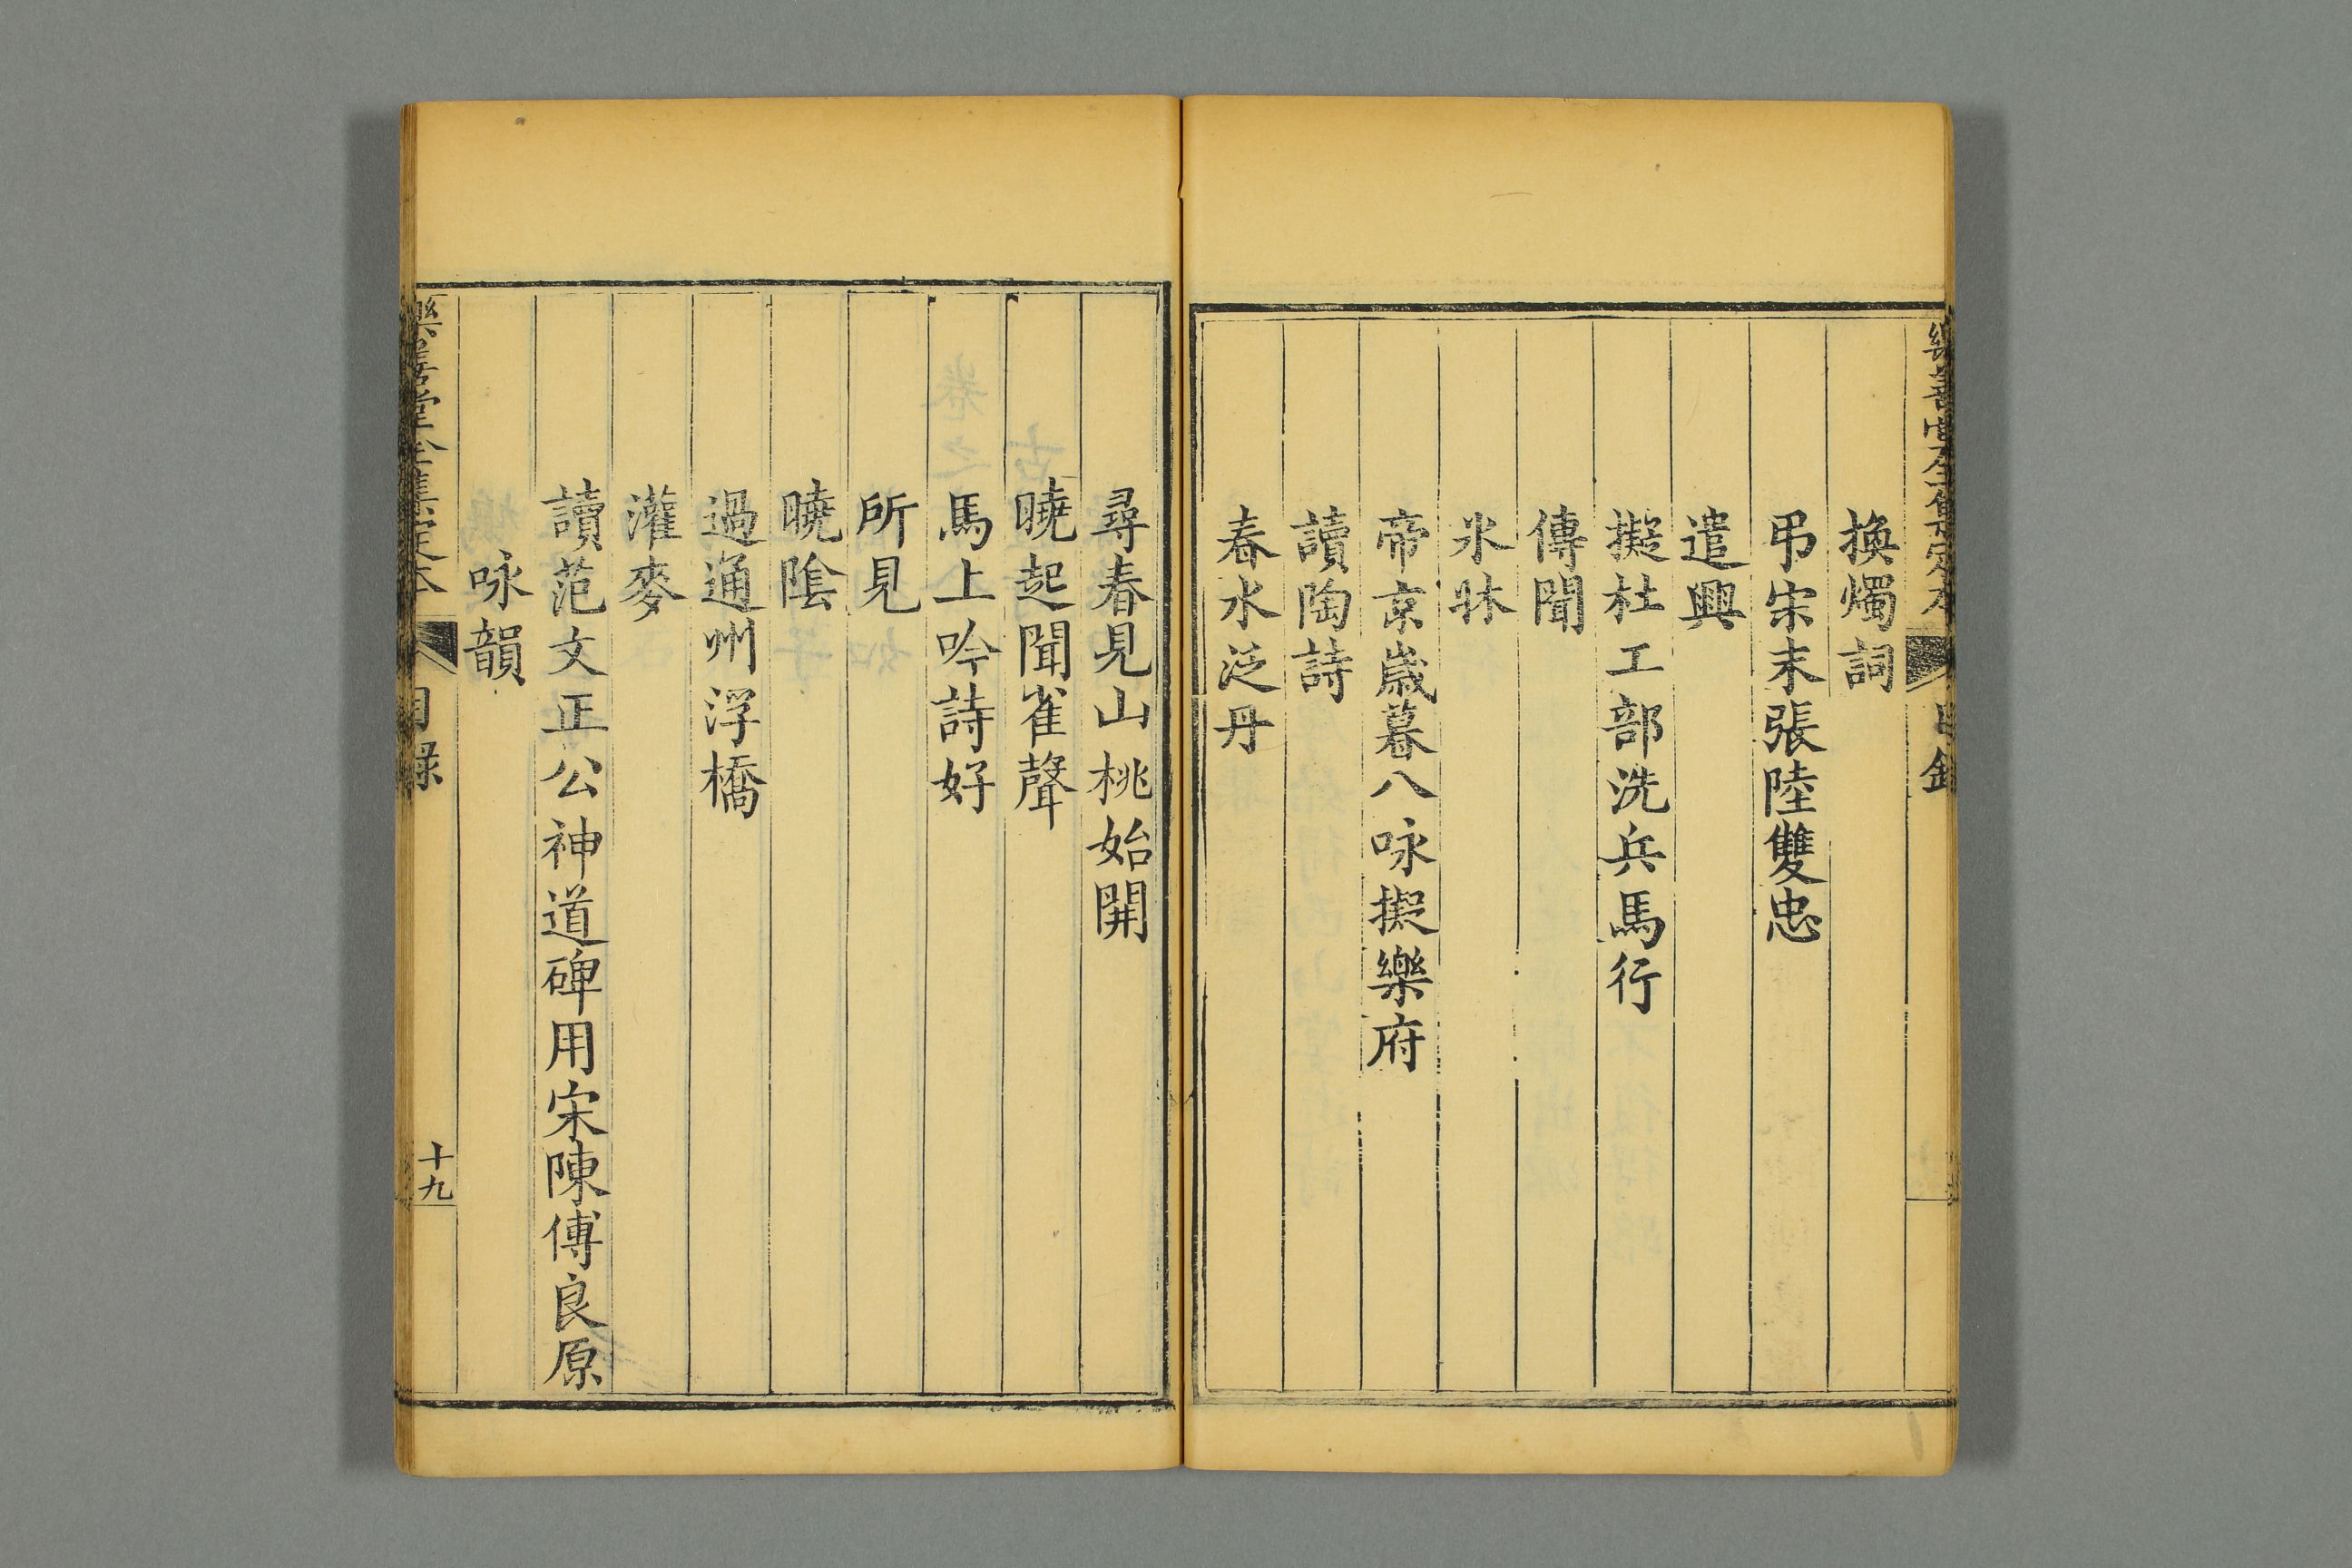 樂善堂全集定本 目錄
換燭詞
弔宋末張陸雙忠
遣興
擬杜工部洗兵馬行
傳聞
氷牀
帝京歲暮八咏擬樂府
讀陶詩
春水泛舟
尋春見山桃始開
曉起聞雀聲
馬上吟詩好
所見
曉陰
過通州浮橋
灌麥
讀范文正公神道碑用宋陳傅良原
咏韻
樂善堂全集定本 目錄 十九